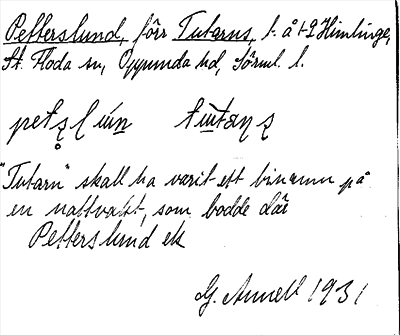 Petterslund, förr Tutarns, t. å t. 2 Himlinge,
St. Floda sn, Oppunda hd, Sörml. l.
petʂlún tutaɳʂ
"Tutarn" skall ha varit ett binamn på
en nattvakt, som bodde där
Petterslund ek
G. Annell 1931